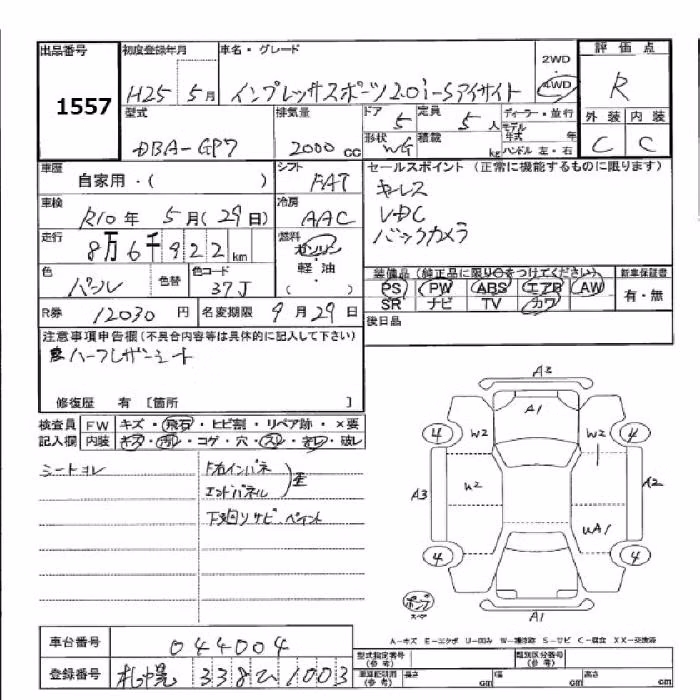 出品番号 初度登録年月 車名・グレード 2WD 評価点
1557 H25 5月 インプレッサスポーツ2.0i-Sアイサイト 4WD R
型式 排気量 ドア 定員 ディーラー・並行 外装 内装
DBA-GP7 2000cc 5 5人 モデル年式 年 C C
形状 WG 積載 kg ハンドル 左・右
車歴 シフト セールスポイント (正常に機能するものに限ります)
自家用・( ) FAT キーレス
車検 冷房 VDC
R10年 5月(29日) AAC バックカメラ
走行 燃料
8万6千922km ガソリン・軽油・( )
色 色替 色コード 装備品(純正品に限り○をつけてください) 新車保証書
パール 37J PS PW ABS エアB AW 有・無
SR ナビ TV カワ
R券 12030円 名変期限 9月29日 後日品
注意事項申告欄(不具合内容等は具体的に記入して下さい)
ハーフレザーシート
修復歴 有 [箇所 ]
検査員 FW キズ・飛石・ヒビ割・リペア跡・×要
記入欄 内装 キズ・汚れ・コゲ・穴・スレ・キレ・破レ
シートヨレ F右インパネ
エンドパネル 歪
下廻リサビ ペイント
A3
A1
4 W2 W2 4
A3 W2 A2
WA1
4 4
A1
A-キズ E-エクボ U-凹み W-補修跡 S-サビ C-腐食 XX-交換済
車台番号 044004
登録番号 札幌 338ひ1003
型式指定番号(参考) 類別区分番号(参考)
長さ cm 幅 cm 高さ cm